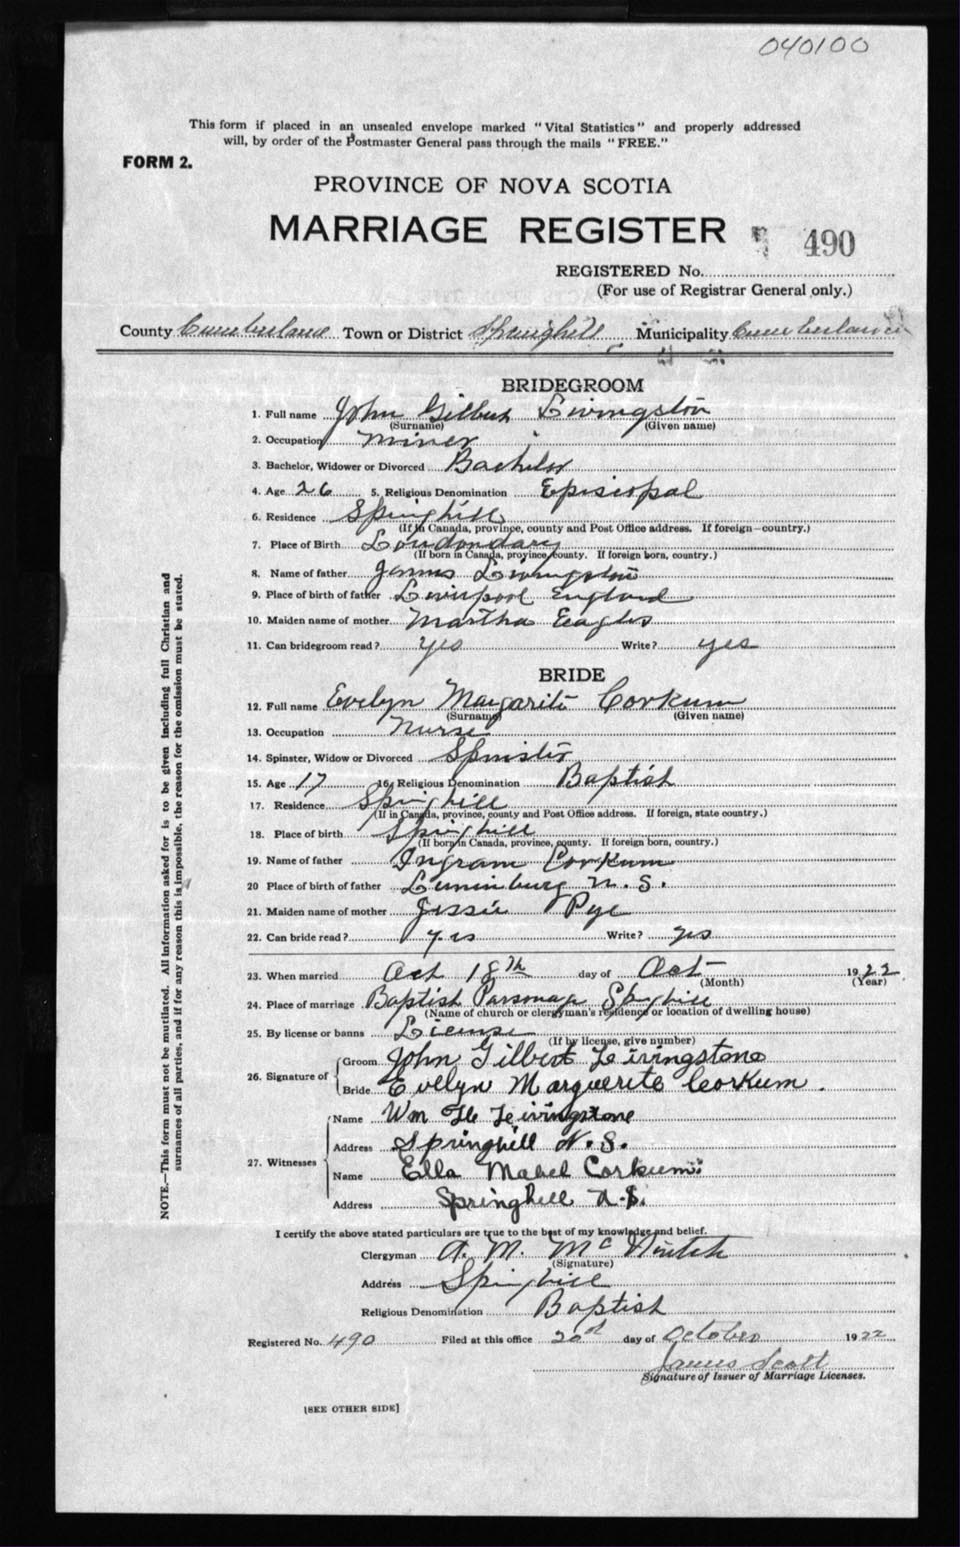 040100
This form if placed in an unsealed envelope marked "Vital Statistics" and properly addressed
will, by order of the Postmaster General pass through the mails "FREE."
FORM 2.
PROVINCE OF NOVA SCOTIA
MARRIAGE REGISTER 490
REGISTERED No.
(For use of Registrar General only.)
County Cumberland Town or District Springhill Municipality Cumberland
BRIDEGROOM
1. Full name John Gilbert Livingston
(Surname) (Given name)
2. Occupation Miner
3. Bachelor, Widower or Divorced Bachelor
4. Age 26 5. Religious Denomination Episcopal
6. Residence Springhill
(If in Canada, province, county and Post Office address. If foreign—country.)
7. Place of Birth Loudondary
(If born in Canada, province, county. If foreign born, country.)
8. Name of father James Livingston
9. Place of birth of father Liverpool England
10. Maiden name of mother Martha Eagles
11. Can bridegroom read? yes Write? yes
BRIDE
12. Full name Evelyn Margarite Corkum
(Surname) (Given name)
13. Occupation Nurse
14. Spinster, Widow or Divorced Spinster
15. Age 17 16. Religious Denomination Baptist
17. Residence Springhill
(If in Canada, province, county and Post Office address. If foreign, state country.)
18. Place of birth Springhill
(If born in Canada, province, county. If foreign born, country.)
19. Name of father Ingram Corkum
20 Place of birth of father Luninburg N. S.
21. Maiden name of mother Jessie Pye
22. Can bride read? yes Write? yes
23. When married Oct 18th day of Oct 1922
(Month) (Year)
24. Place of marriage Baptist Parsonage Springhill
(Name of church or clergyman's residence or location of dwelling house)
25. By license or banns License
(If by license, give number)
26. Signature of Groom John Gilbert Livingstone
Bride Evelyn Marguerite Corkum.
27. Witnesses Name Wm H Livingstone
Address Springhill N. S.
Name Ella Mabel Corkum
Address Springhill N.S.
I certify the above stated particulars are true to the best of my knowledge and belief.
Clergyman A. M. McNintch
(Signature)
Address Springhill
Religious Denomination Baptist
Registered No. 490 Filed at this office 20th day of October 1922
James Scott
Signature of Issuer of Marriage Licenses.
[SEE OTHER SIDE]
NOTE.—This form must not be mutilated. All information asked for is to be given including full Christian and
surnames of all parties, and if for any reason this is impossible, the reason for the omission must be stated.